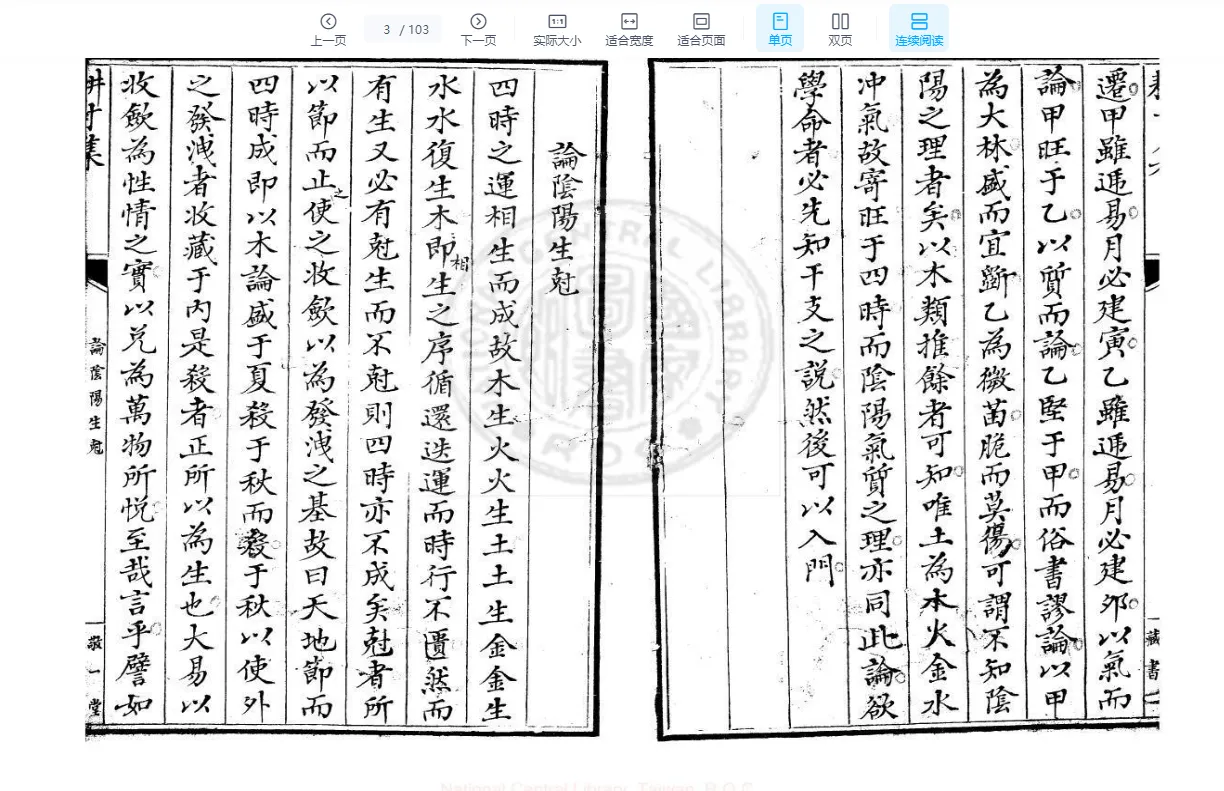 上一页
3 / 103
下一页
1:1
实际大小
适合宽度
适合页面
单页
双页
连续阅读
遷甲雖逓易月必建寅乙雖逓易月必建夘以氣而
論甲旺于乙以質而論乙堅于甲而俗書謬論以甲
為大林盛而宜斷乙為微苗脆而莫傷可謂不知陰
陽之理者矣以木類推餘者可知唯土為木火金水
冲氣故寄旺于四時而陰陽氣質之理亦同此論欲
學命者必先知干支之説然後可以入門
藏書
論陰陽生尅
四時之運相生而成故木生火火生土土生金金生
水水復生木即相生之序循還迭運而時行不匱然而
有生又必有尅生而不尅則四時亦不成矣尅者所
以節而止之使之收歛以為發洩之基故曰天地節而
四時成即以木論盛于夏殺于秋而殺于秋以使外
之發洩者收藏于内是殺者正所以為生也大易以
收歛為性情之實以兑為萬物所悦至哉言乎譬如
論陰陽生尅
敬一堂
NATIONAL CENTRAL LIBRARY
R.O.C.
National Central Library, Taiwan, R.O.C